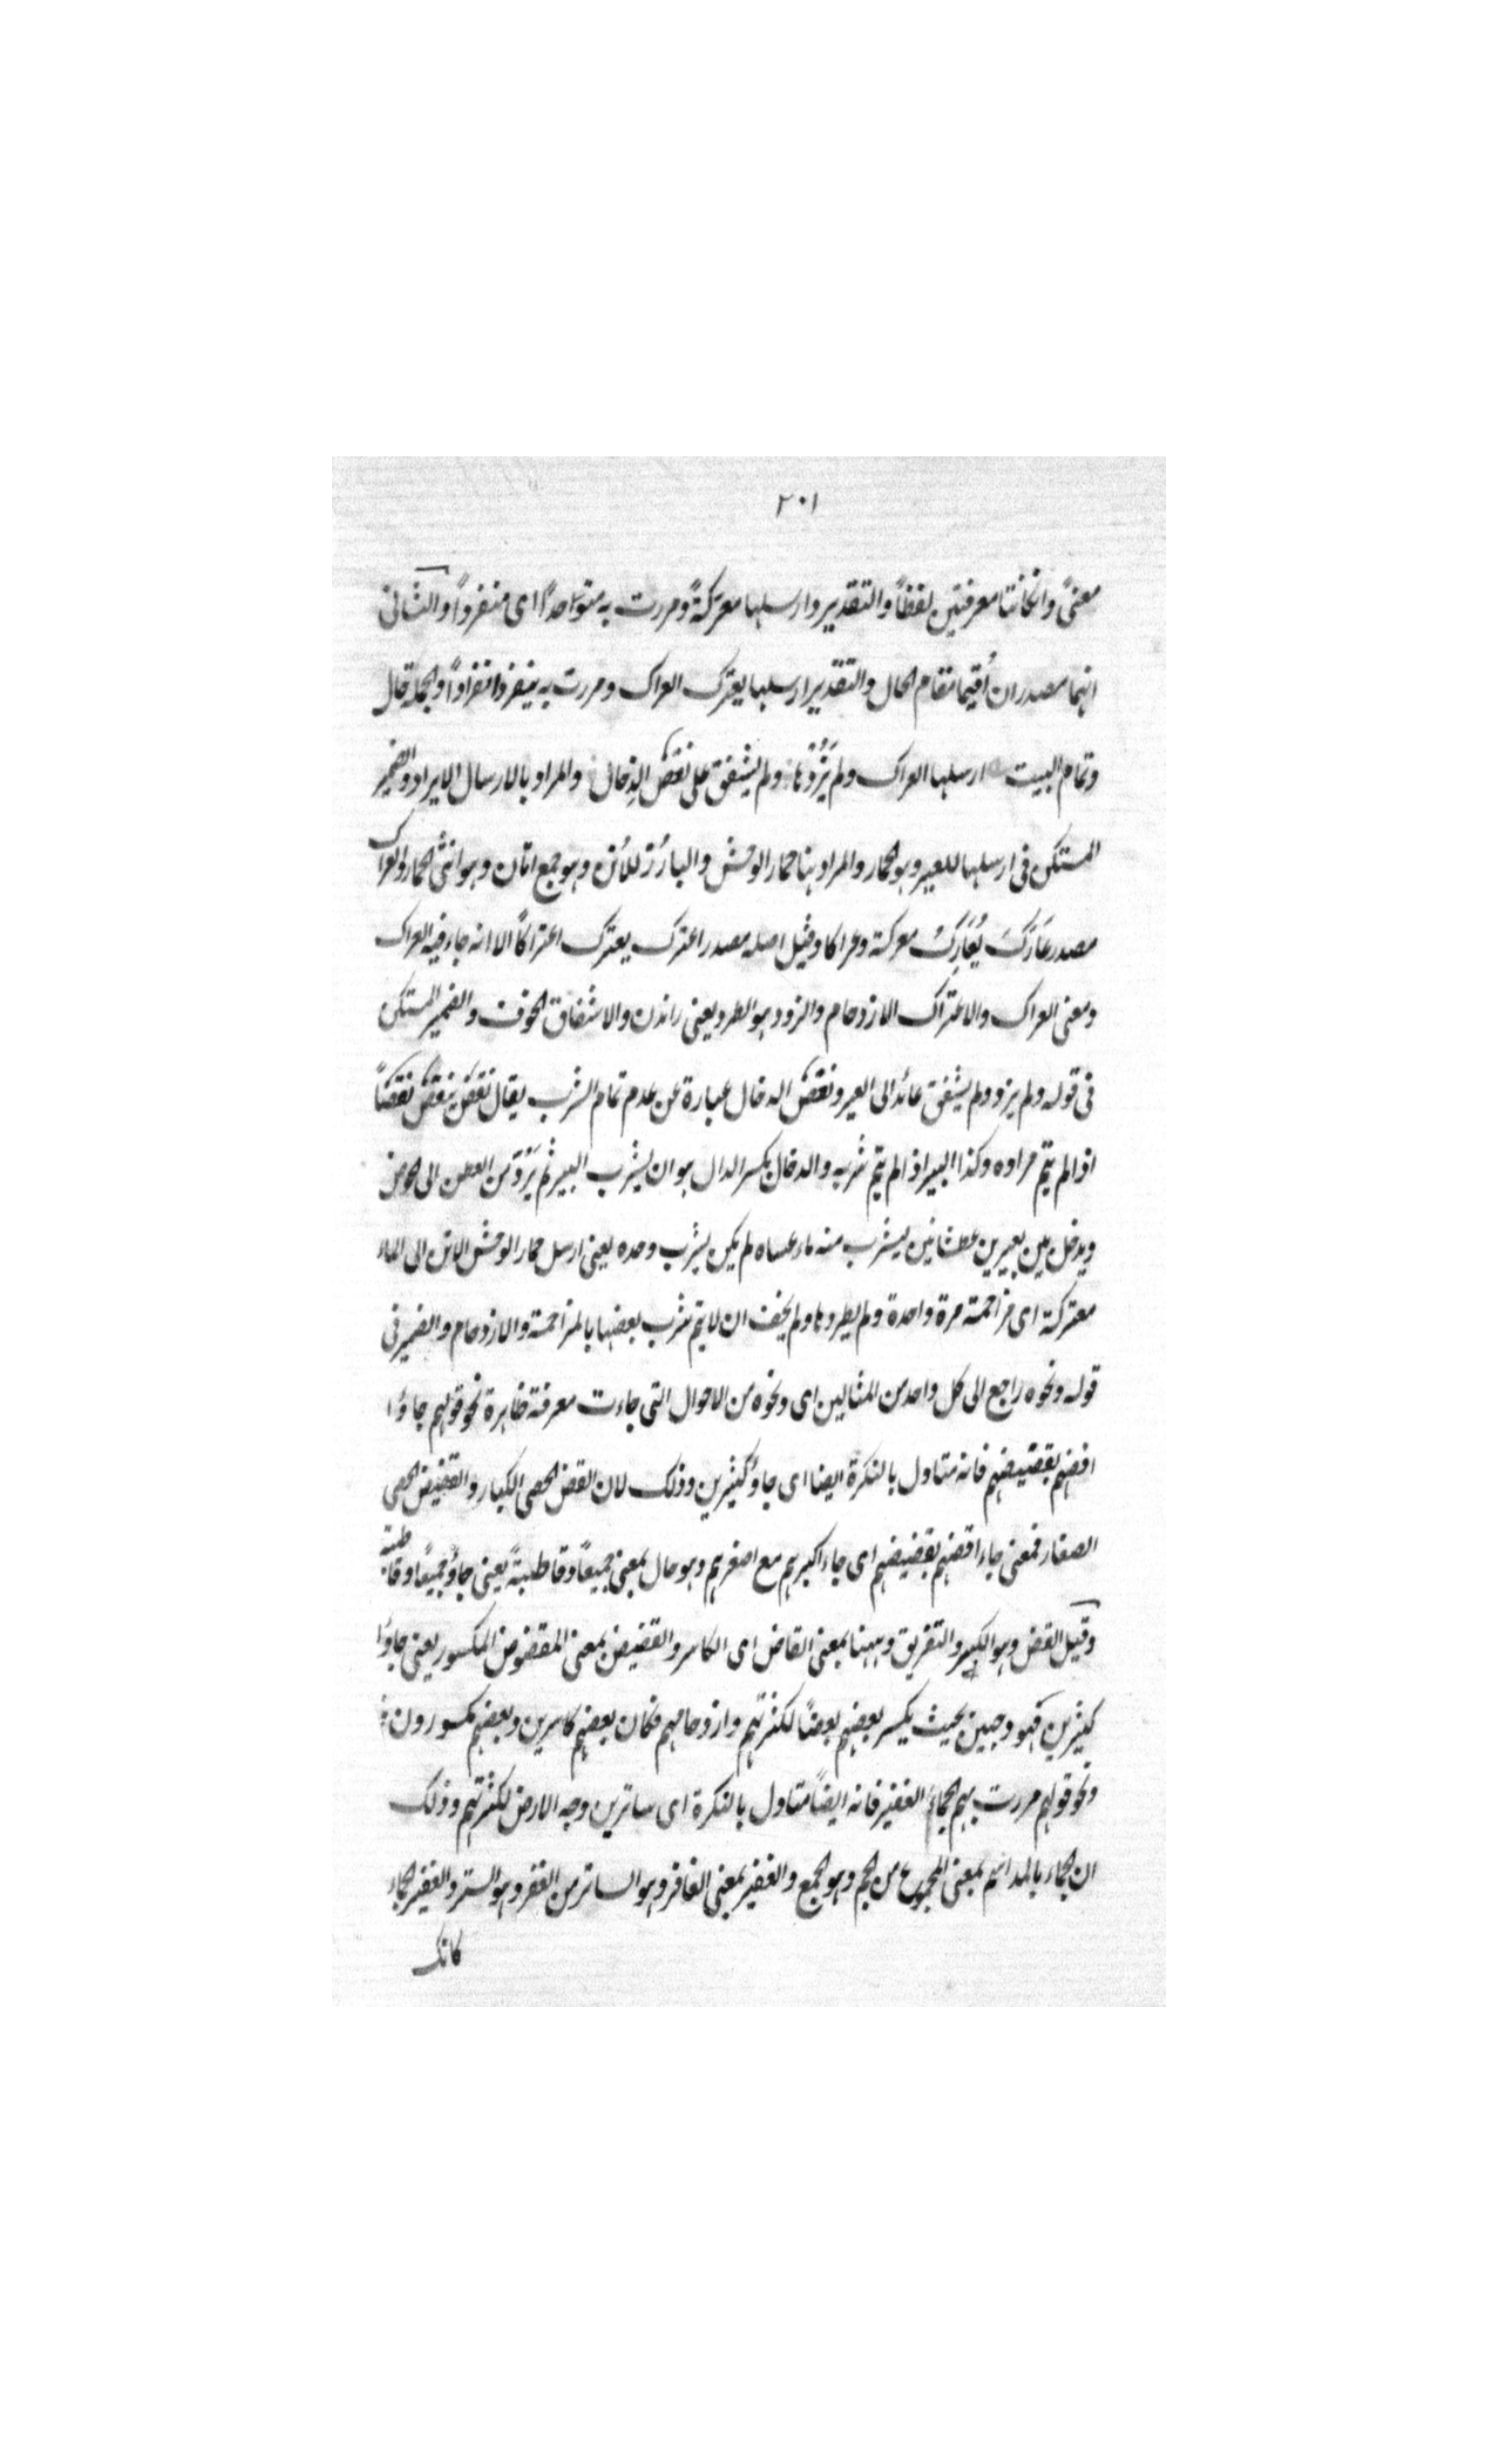 ٢٠١
معنىً وانكانتا معرفتين لفظاً والتقدير وارسلها معتركةً ومررت به متوحداً اى منفرداً والثانى
انهما مصدران اُقيما مقام الحال والتقدير ارسلها يعترك العراك ومررت به ينفرد انفراداً والجملة حال
وتمام البيت ارسلها العراك ولم يَذُدْها ولم يشفق على نغض الدِخال والمراد بالارسال الايراد والضمير
المستكن فى ارسلها للعير وهو الحمار والمراد هنا حمار الوحش والبارز للاُتن وهو جمع اتان وهو انثى الحمار والعراك
مصدر عَارَكَ يُعَارِكُ معركة وعراكا وقيل اصله مصدر اعترك يعترك اعتراكاً الا انه جاء فيه العراك
ومعنى العراك والاعتراك الازدحام والزود هو الطرد يعنى راندن والاشفاق الخوف والضمير المستكن
فى قوله ولم يزد ولم يشفق عائد الى العير ونغض الدخال عبارة عن عدم تمام الشرب يقال نغض ينغض نغضاً
اذا لم يتم مراده وكذا البعير اذا لم يتم شربه والدخال بكسر الدال هو ان يشرب البعير ثم يَرُدّ من العطن الى الحوض
ويدخل بين بعيرين عطشانين ليشرب منه ماء عساه لم يكن يشرب وحده يعنى ارسل حمار الوحش الاتن الى الماء
معتركة اى مزاحمة مرة واحدة ولم يطردها ولم يخف ان لا يتم شرب بعضها بالمزاحمة والازدحام والضمير فى
قوله ونحوه راجع الى كل واحد من المثالين اى ونحوه من الاحوال التى جاءت معرفة ظاهرة نحو قولهم جاؤا
اقضهم بقضيضهم فانه متاول بالنكرة ايضا اى جاؤ كثيرين وذلك لان القض الحصى الكبار والقضيض الحصى
الصغار فمعنى جاء اقضهم بقضيضهم اى جاء اكبرهم مع اصغرهم وهو حال بمعنى جميعاً وقاطبةً يعنى جاؤ جميعًا وقاطبة
وقيل القض وهو الكسر والتفريق وههنا بمعنى القاض اى الكاسر والقضيض بمعنى المقضوض المكسور يعنى جاؤا
كثيرين مزدوجين بحيث يكسر بعضهم بعضًا لكثرتهم وازدحامهم فكان بعضهم كاسرين وبعضهم مكسورون
ونحو قولهم مررت بهم الجماءَ الغفير فانه ايضًا متاول بالنكرة اى ساترين وجه الارض لكثرتهم وذلك
ان الجماء بالمد اسم بمعنى المجموع من الجم وهو الجمع والغفير بمعنى الغافر وهو الساتر من الغفر وهو الستر والغفير الجماء
كانك